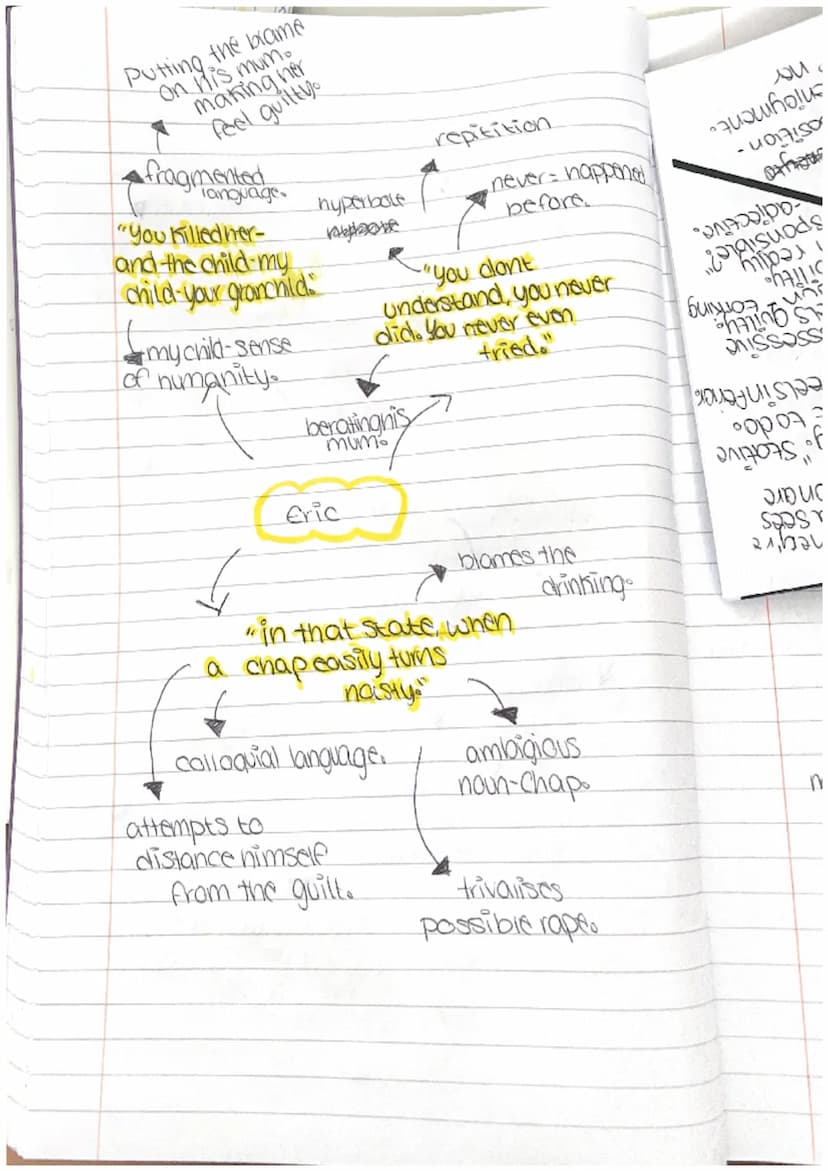 Putting the blame
on his mum.
making her
feel guilty.
fragmented
language.
"You killed her-
and the child-my
child-your granchild."
my child-sense
of humanity.
repitition
never = happened
before.
hyperbole
"you dont
understand, you never
did. You never even
tried."
berating his
mum.
Eric
blames the
drinking.
"in that state, when
a chap easily turns
naisty."
colloquial language.
ambigious
noun-chap.
attempts to
distance himself
from the guilt.
trivalises
possible rape.
not
enjoyment.
-adjective.
responsible?"
really
guilty.
possessive
inferior
to do.
"Stative
sees